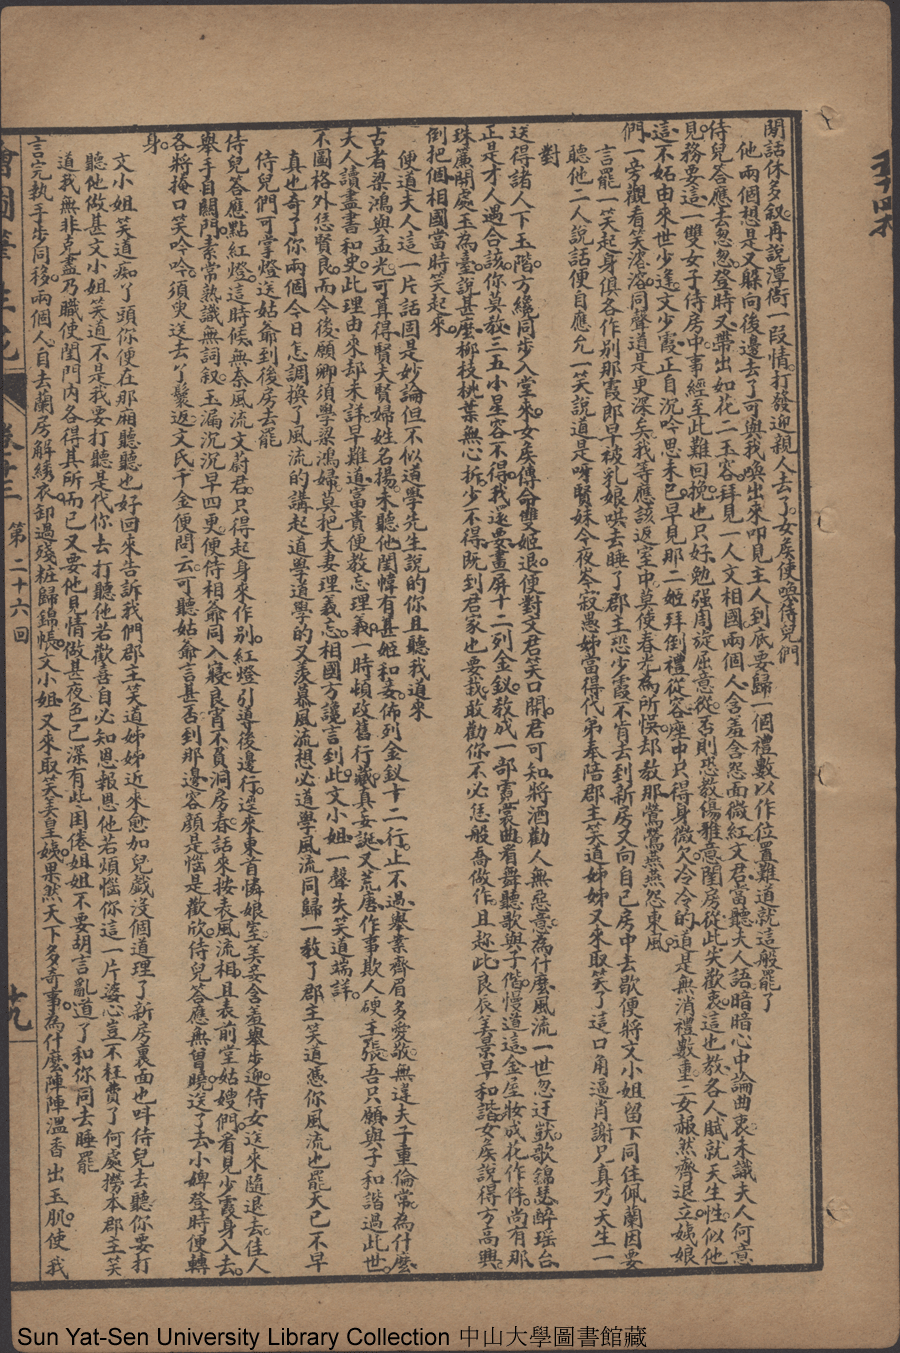 閒話休多叙。再說潭衙一段情。打發迎親人去了。女矦使喚侍兒們
他兩個想是又躲向後邊去了可與我喚出來叩見主人到底要歸一個禮數以作位置難道就這般罷了
侍兒答應去忽忽。登時又帶出如花二玉容。拜見一人文相國。兩個人含羞含怨面微紅。文君當聽夫人語。暗暗心中論曲衷。未識夫人何意
見。務要這一雙女子侍房中。事經至此難回挽。也只好勉强周旋屈意從。否則恐教傷雅意。閨房從此失歡衷。這也教各人賦就天生性。似他
這不妬由來世少逢。文少霞正自沉吟思未已。早見那二姬拜倒禮從容。座中只得身微欠。冷冷的道是無消禮數重。二女赧然齊退立。姨娘
們一旁觀看笑溶溶。同聲道是更深矣。我等應該返室中。莫使春光為所悞。却教那鶯鶯燕燕怨東風。
言罷一笑起身俱各作別那霞郎早被乳娘哄去睡了郡主恐少霞不肯去到新房又向自己房中去歇便將文小姐留下同住佩蘭因要
聽他二人說話便自應允一笑說道是呀賢妹今夜岑寂愚姊當得代弟奉陪郡主笑道姊姊又來取笑了這口角逼肖謝兄真乃天生一
對
送得諸人下玉階。方纔同步入堂來。女矦傳命雙姬退。便對文君笑口開。君可知將酒勸人無惡意。為什麼風流一世忽迂獃。歌錦瑟醉瑶台。
正是才人遇合該。你莫教三五小星容不得。我還要畫屏十二列金釵。教成一部霓裳曲。看舞聽歌與子偕。慢道這金屋妝成花作伴。尚有那
珠簾開處玉為臺。說甚麼柳枝桃葉無心拆。少不得既到君家也要栽。敢勸你不必恁般喬做作。且趂此良辰美景早和諧。女矦說得方高興。
倒把個相國當時笑起來。
便道夫人這一片話固是妙論但不似道學先生說的你且聽我道來
古者梁鴻與孟光。可算得賢夫賢婦姓名揚。未聽他閨幃有甚姬和妾。佈列金釵十二行。止不過舉案齊眉多愛敬。無違夫子重倫常。為什麼
夫人讀盡書和史。此理由來却未詳。早難道富貴便教忘理義。一時頓改舊行藏。真妄誕又荒唐。作事欺人硬主張。吾只願與子和諧過此世。
不圖格外恁賢良。而今後願卿須學梁鴻婦。莫把夫妻理義忘。相國方纔言到此。文小姐一聲失笑道端詳。
真也奇了你兩個今日怎調換了風流的講起道學道學的又羨慕風流想必道學風流同歸一教了郡主笑道憑你風流也罷天已不早
侍兒們可掌燈送姑爺到後房去罷
侍兒答應點紅燈。這時候無奈風流文蔚君。只得起身來作別。紅燈引導後邊行。逕來東首憐娘室。美妾含羞舉步迎。侍女送來隨退去。佳人
舉手自關門。素常熟識無詞叙。玉漏沉沉早四更。便侍相爺同入寢。良宵不負洞房春。話來按表風流相。且表前堂姑嫂們。看見少霞身入去。
各將掩口笑吟吟。須臾送去了鬟返。文氏千金便問云。可聽姑爺言甚否。到那邊容顏是惱是歡欣。侍兒答應無曾曉。送了去小婢登時便轉
身。
文小姐笑道痴丫頭你便在那厢聽聽也好回來告訴我們郡主笑道姊姊近來愈加兒戲沒個道理了新房裏面也呌侍兒去聽你要打
聽他做甚文小姐笑道不是我要打聽是代你去打聽他若歡喜自必知恩報恩他若煩惱你這一片婆心豈不枉費了何處撈本郡主笑
道我無非克盡乃職使閨門內各得其所而已又要他見情做甚夜色已深有此困倦姐姐不要胡言亂道了和你同去睡罷
言完執手步同移。兩個人自去蘭房解綉衣。卸過殘粧歸錦帳。文小姐又來取笑美皇姨。果然天下多奇事。為什麼陣陣溫香出玉肌。使我
第二十六回
Sun Yat-Sen University Library Collection 中山大學圖書館藏